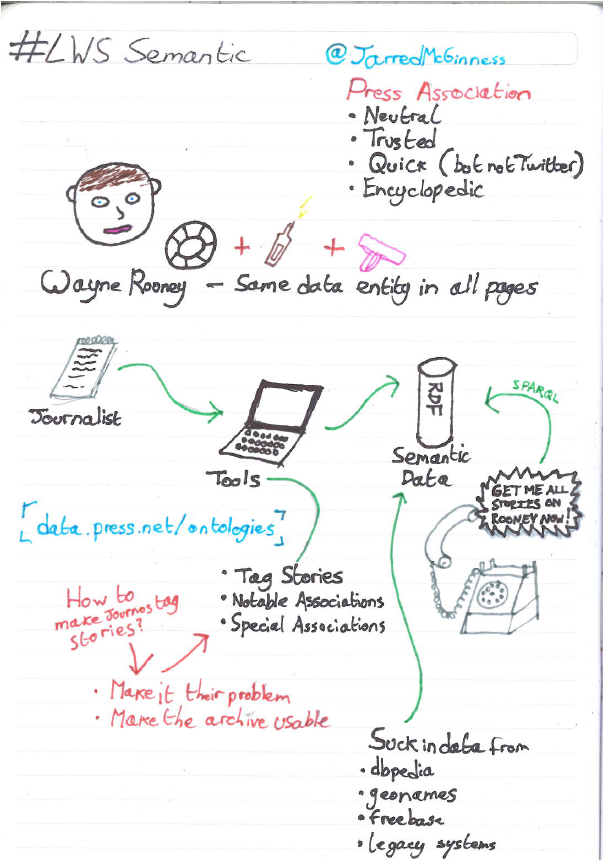 #LWS Semantic
@JarredMcGinness
Press Association
• Neutral
• Trusted
• Quick (but not Twitter)
• Encyclopedic
Wayne Rooney — Same data entity in all pages
Journalist
Tools
RDF
Semantic
Data
SPARQL
GET ME ALL
STORIES ON
ROONEY NOW!
data.press.net/ontologies
• Tag Stories
• Notable Associations
• Special Associations
How to
make Journos tag
stories?
• Make it their problem
• Make the archive usable
Suck in data from
• dbpedia
• geonames
• freebase
• legacy systems